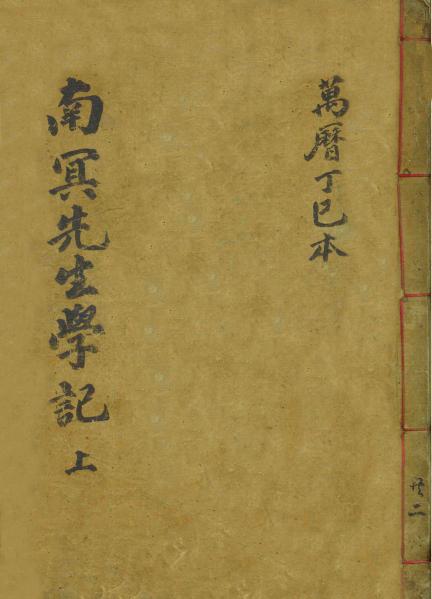 萬曆丁巳本
南冥先生學記 上
共二